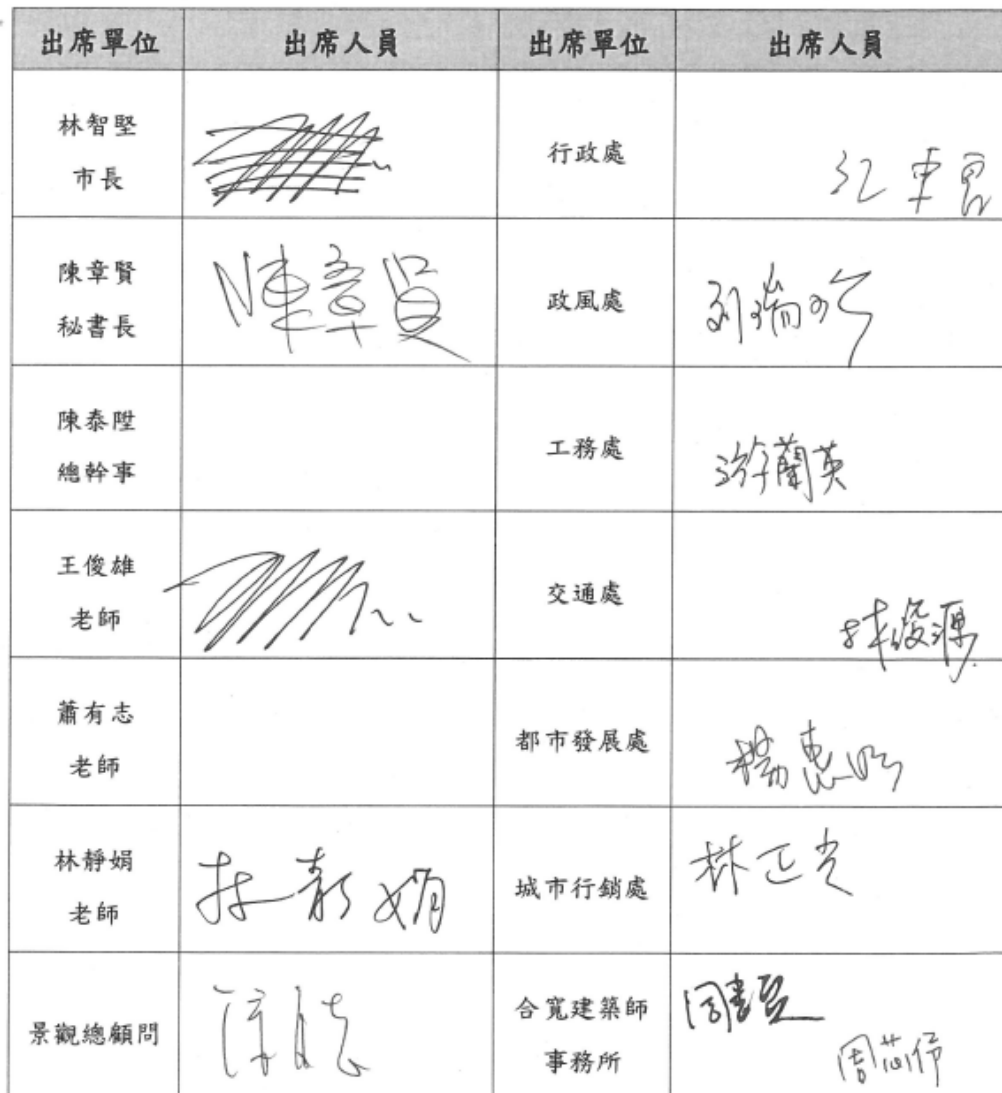 出席單位 出席人員 出席單位 出席人員
林智堅 市長 行政處
陳章賢 秘書長 陳章賢 政風處
陳泰陞 總幹事 工務處 游蘭英
王俊雄 老師 交通處 林俊源
蕭有志 老師 都市發展處 楊惠
林靜娟 老師 林靜娟 城市行銷處 林正光
景觀總顧問 合寬建築師 事務所